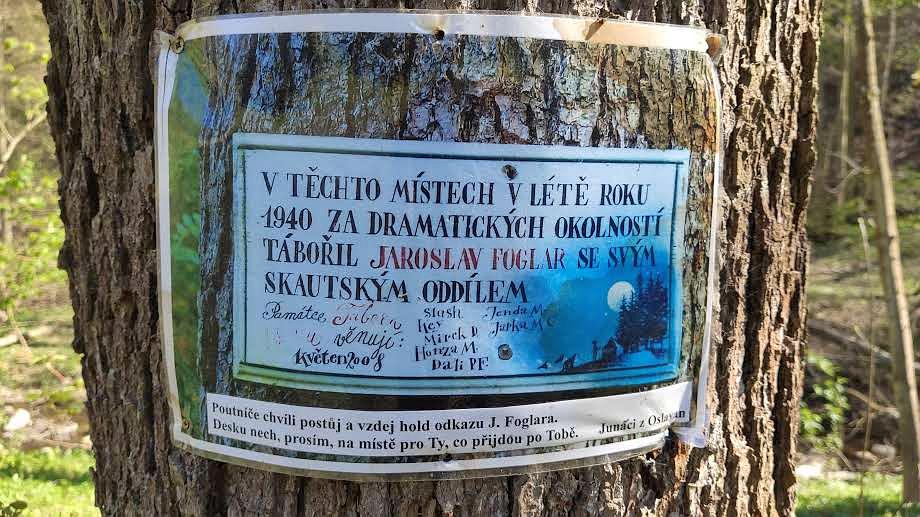 V TĚCHTO MÍSTECH V LÉTĚ ROKU
1940 ZA DRAMATICKÝCH OKOLNOSTÍ
TÁBOŘIL JAROSLAV FOGLAR SE SVÝM
SKAUTSKÝM ODDÍLEM
Památce Tábora
věnují:
Květen 2008
Jenda M.
Key Jarka M
Mirek D.
Honza M.
Dali PF.
Poutníče chvíli postůj a vzdej hold odkazu J. Foglara.
Desku nech, prosím, na místě pro Ty, co přijdou po Tobě. Junáci z Oslavan